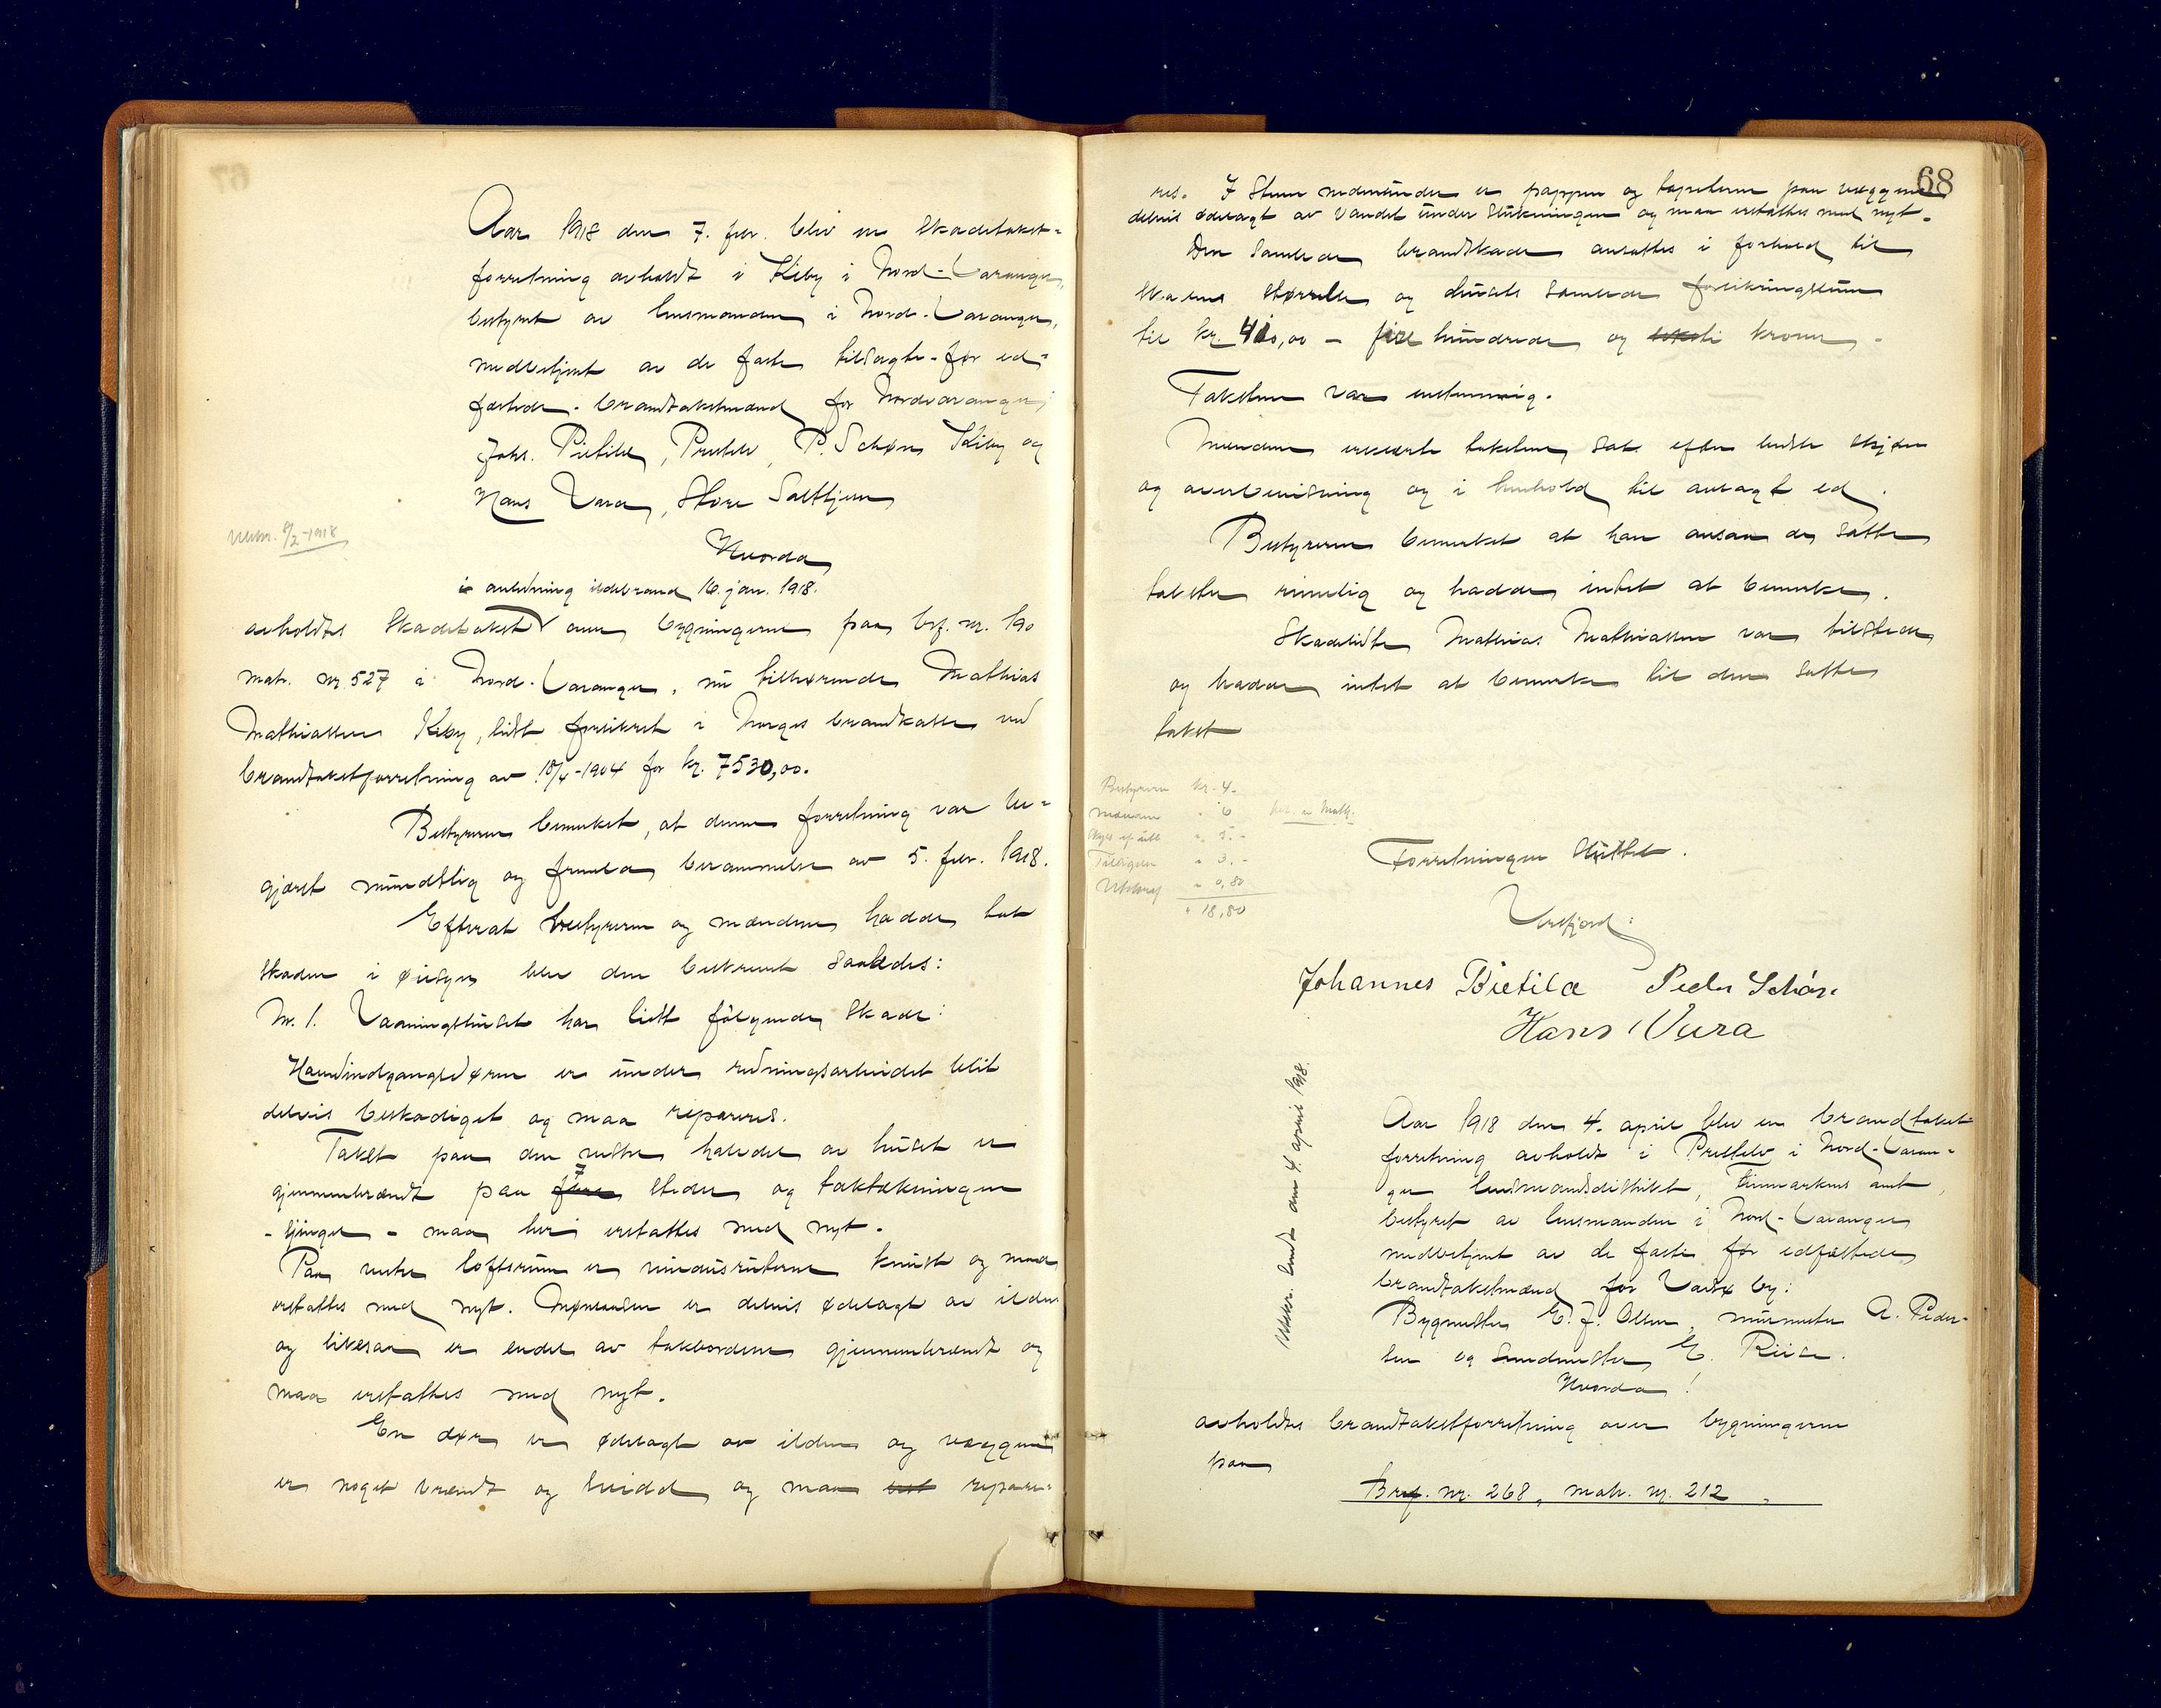 Aar 1918 den 7. febr. blev en skadetakst-
forretning avholdt i Kiby i Nord-Varanger,
bestyret av lensmanden i Nord-Varanger,
medbetjent av de faste tilsagte - før ed-
fæstede - brandtakstmænd for Nordvaranger:
Johs. Pietilæ, Prestelv, P. Schøn, Kiby og
Hans Vara, Store Salttjern
Utskr. 8/2-1918
Hvorda
i anledning ildebrand 16. jan. 1918.
avholdtes skadetakst over bygningerne paa brf. nr. 190
matr. nr. 527 i Nord-Varanger, nu tilhørende Mathias
Mathiassen Kiby, sidst forsikret i Norges brandkasse ved
brandtakstforretning av 18/4-1904 for kr. 7530,00.
Bestyreren bemerket, at denne forretning var be-
gjæret mundtlig og fremla berammelse av 5. febr. 1918.
Efterat bestyreren og mændene hadde tat
skaden i øiesyn blev den beskrevet saaledes:
Nr. 1. Vaaningshuset har lidt følgende skade:
Hovedindgangsdøren er under redningsarbeidet blit
delvis beskadiget og maa repareres.
Taket paa den vestre halvdel av huset er
gjennembrændt paa fire 7 steder og taktækningen
- spinger - maa her erstattes med nyt.
Paa vestre loftsrum er vinduesruterne knust og maa
erstattes med nyt. Møneaasen er delvis ødelagt av ilden
og likesaa er endel av takbordene gjennembrændt og
maa erstattes med nyt.
En dør er ødelagt av ilden og væggene
er noget brændt og svidd og maa ist repare-
68
res. I stuen nedenunder er pappen og tapeterne paa væggene
delvis ødelagt av vandet under slukningen og maa erstattes med nyt.
Den samlede brandskade ansattes i forhold til
skadens størrelse og husets samlede forsikringssum
til kr. 410,00 - fire hundrede og ti kroner.
Taksten var enstemmig.
Mændene erklærte taksten sat efter bedste skjøn
og overbevisning og i henhold til avlagt ed.
Bestyreren bemerket at han ansaa den satte
takst rimelig og hadde intet at bemerke.
Skadelidte Mathias Mathiassen var tilstede
og hadde intet at bemerke til den satte
takst
Bestyreren kr. 4.-
mændene " 6
Skyds " 5.-
Tilsigelse " 3.-
Utskrift " 0,80
" 18,80
Forretningen sluttet.
Versfjord:
Johannes Pietilæ Peder Schøn
Hans Vara
Utskr. sendt den 4. april 1918.
Aar 1918 den 4. april blev en brandtakst
forretning avholdt i Prestelv i Nord-Varan-
ger lensmandsdistrikt, Finmarkens amt,
bestyret av lensmanden i Nord-Varanger
medbetjent av de faste før edfæstede
brandtakstmænd for Vadsø by:
Bygmester E. J. Olsen, murmester A. Peder-
sen og smedmester E. Riise.
Hvorda!
avholdtes brandtakstforretning over bygningerne
paa
Brf. nr. 268, matr. nr. 212